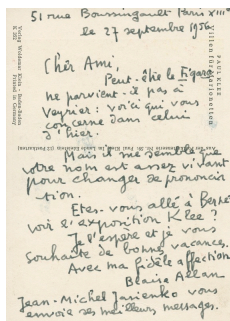 51 rue Boussingault Paris XIIIe
le 27 septembre 1956
Cher Ami,
Peut-être le Figaro
ne parvient-il pas à
Veyrier : voici qui vous
concerne dans celui
d'hier.
Mais il me semble que
votre nom est assez vivant
pour changer de prononcia
tion.
Etes-vous allé à Berne
voir l'exposition Klee ?
Je l'espère et je vous
souhaite de bonnes vacances.
Avec ma fidèle affection
Blaise Allan
Jean-Michel Jasienko vous
envoie ses meilleurs messages.
PAUL KLEE
Verlag Woldemar Klein · Baden-Baden
Printed in Germany